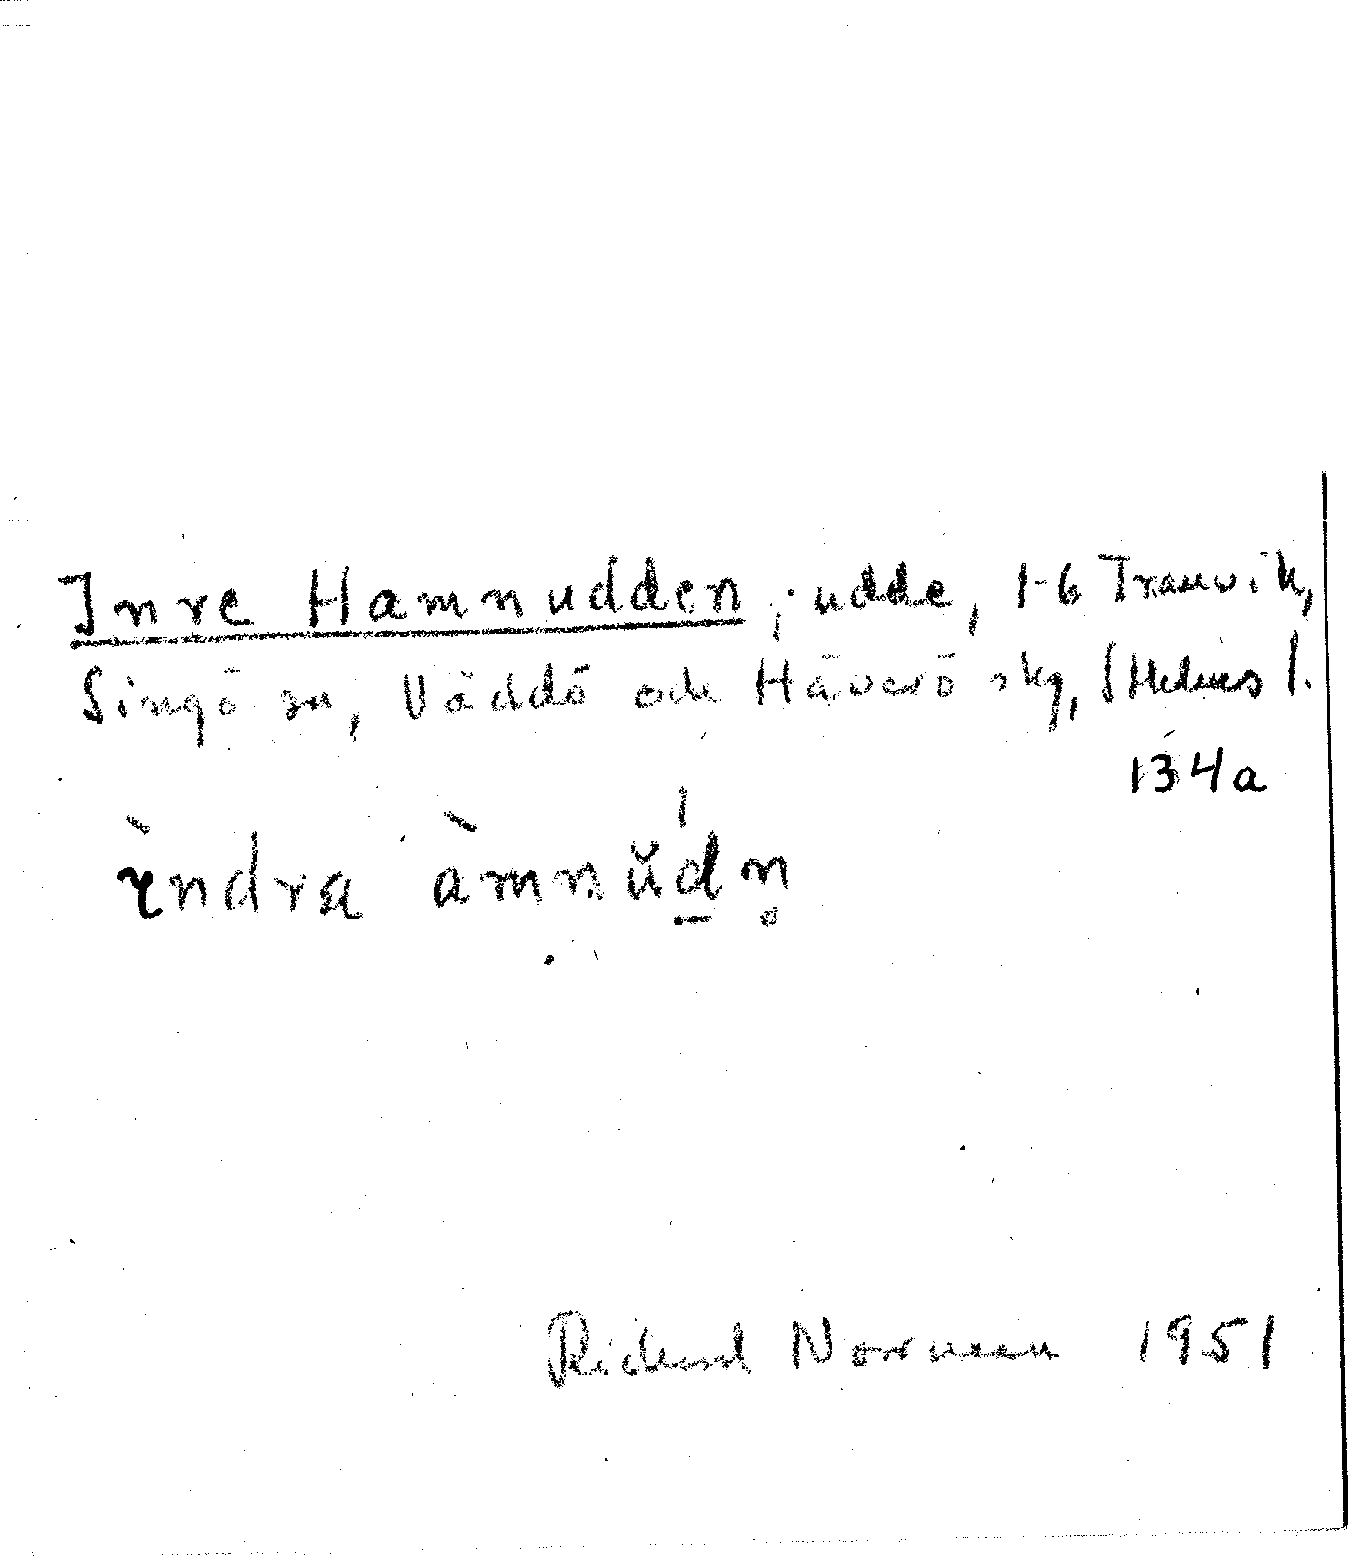 Inre Hamnudden ; udde, 1-6 Tranvik,
Singö sn, Väddö och Häverö skg, Sthlms l.
134a
ìndra àmnŭd̲n̥
Richard Norrman 1951